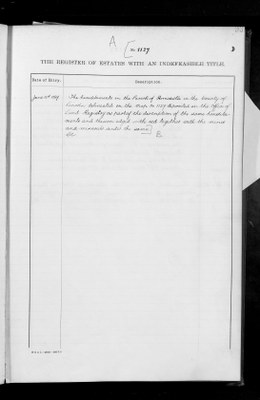 A [No 1157
3
THE REGISTER OF ESTATES WITH AN INDEFEASIBLE TITLE.
Date of Entry. Description.
The hereditaments in the Parish of in the County of
delineated on the Map No 1157 deposited in the Office of
Land Registry as part of the description of the same heredita-
ments and thereon edged with red together with the mines
and minerals under the same]
B